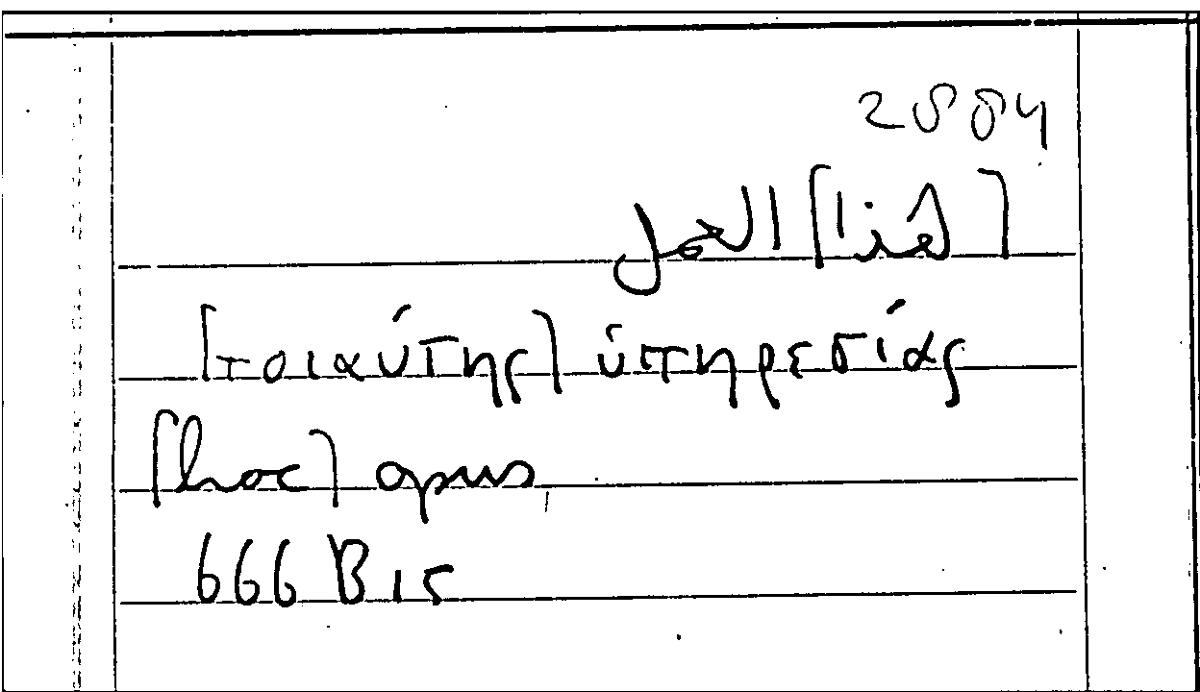 2884
[هذا] العمل
[τοιαύτης] ὑπηρεσίας
[hoc] opus
666 B 15